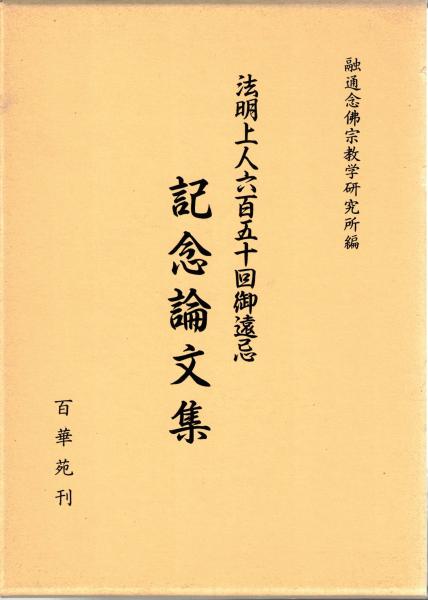 融通念佛宗教学研究所編
法明上人六百五十回御遠忌
記念論文集
百華苑刊